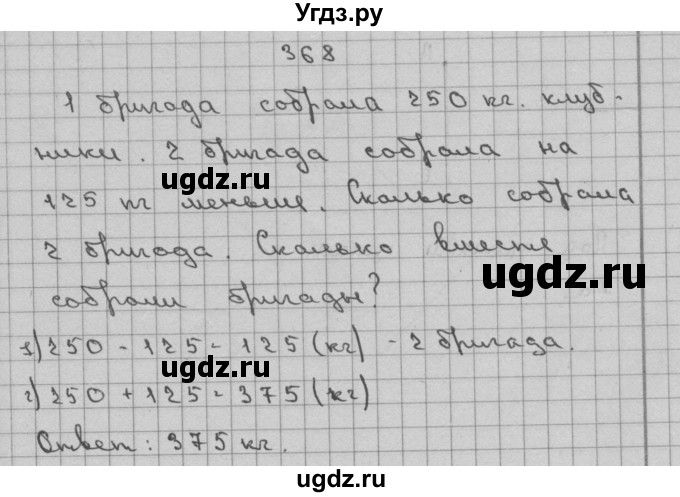 Угдз.ру
368
1 бригада собрала 250 кг. клуб-
ники. 2 бригада собрала на
ugdz.ru
125 кг меньше. Сколько собрала
2 бригада. Сколько вместе
ugdz.ru
собрали бригады?
1) 250 - 125 = 125 (кг) - 2 бригада.
ugdz.ru
2) 250 + 125 = 375 (кг)
Ответ: 375 кг.
ugdz.ru